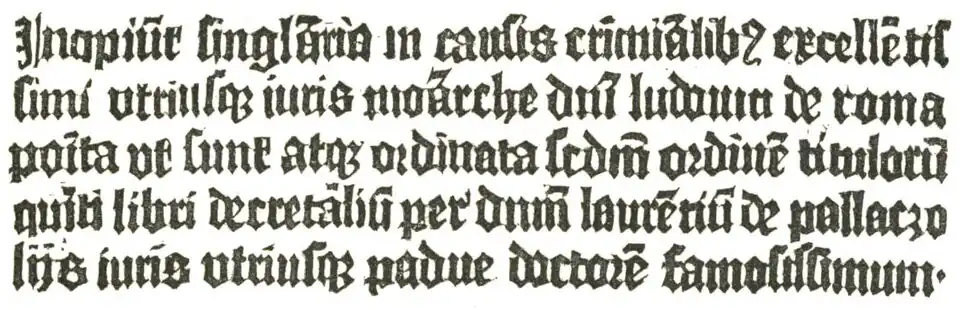 Jncipiūt ſinglāria in cauſis crimīalibꝰ excellētiſ
ſimi vtriuſqꝫ iuris moārche dn̄i ludouici de roma
poſita vt ſunt atqꝫ ordinata ſcd̄m ordinē titulorū
quīti libri decretāliū per dn̄m laurētiū de pallaczo
lijs iuris vtriuſqꝫ padue doctorē famoſiſſimum.